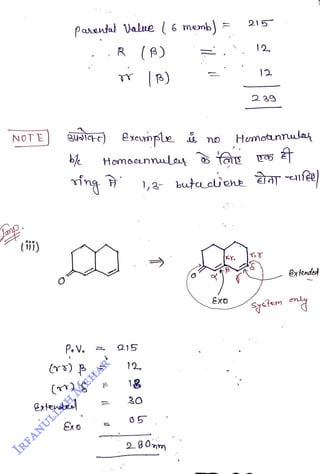 Parental Value ( 6 memb) = 215
R (β) = 12
rr (β) = 12
239
NOTE उपरोक्त) Example is no Homoannular
b/c Homoannular के लिए एक ही
ring में 1,3- butadiene होना चाहिए
Imp.
(iii)
O
⇒
r.r.
r.r
O α β γ δ
Extended
Exo
System only
P.V. = 215
(rr) β = 12
(rr) δ = 18
Extended = 30
Exo = 05
280nm
IRFANULLAH MEHAR